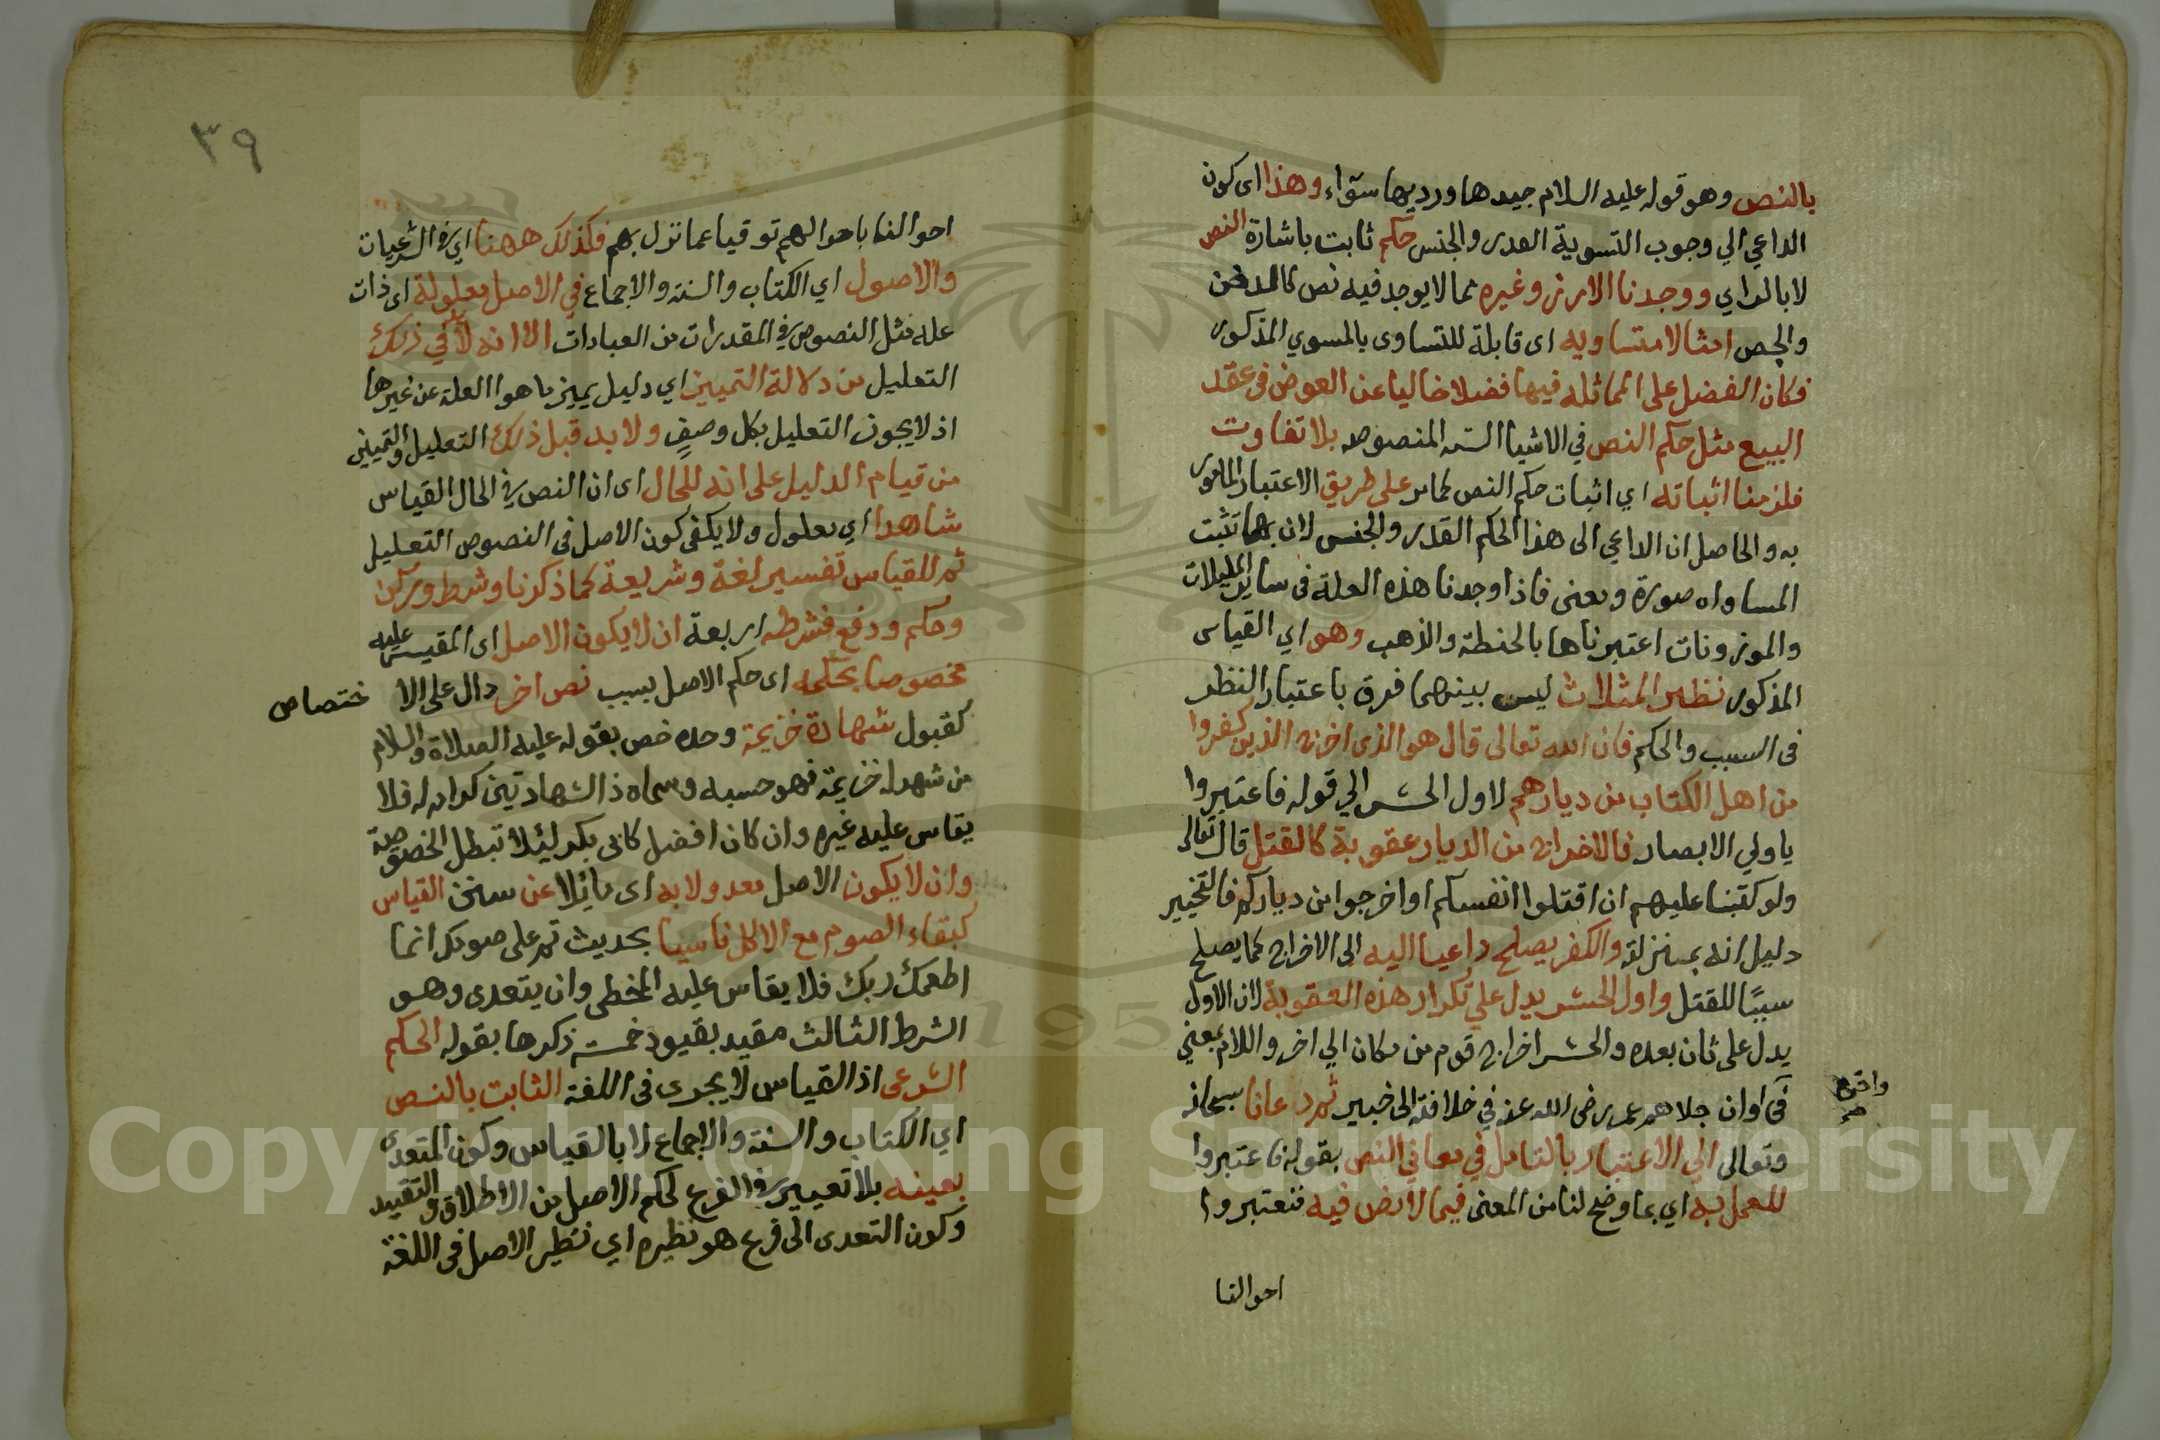 بالنص وهو قوله عليه السلام جيدها ورديها سوآء وهذا اى كون
الداعي الي وجوب التسوية القدر والجنس حكم ثابت باشارة النص
لا بالراي ووجدنا الارز وغيره مما لا يوجد فيه نص كالدخن
والجص امثالا متساويه اى قابلة للتساوى بالمسوي المذكور
فكان الفضل على المماثله فيها فضلا خاليا عن العوض في عقد
البيع مثل حكم النص في الاشيا الستة المنصوصه بلا تفاوت
فلزمنا اثباته اي اثبات حكم النص كما مر على طريق الاعتبار المامور
به والحاصل ان الداعي الى هذا الحكم القدر والجنس لان بهما تثبت
المساواه صورة ومعنى فاذا وجدنا هذه العلة فى ساير المكيلات
والموزونات اعتبرناها بالحنطة والذهب وهو اي القياس
المذكور نظير المثلات ليس بينهما فرق باعتبار النظر
فى السبب والحكم فان الله تعالى قال هو الذى اخرج الذين كفروا
من اهل الكتاب من ديارهم لاول الحشر الي قوله فاعتبروا
ياولي الابصار فالاخراج من الديار عقوبة كالقتل قال تعالى
ولو كتبنا عليهم ان اقتلوا انفسكم او اخرجوا من دياركم فالتخيير
دليل انه بمنزلته والكفر يصلح داعيا اليه الى الاخراج كما يصلح
سببًا للقتل واول الحشر يدل علي تكرار هذه العقوبة لان الاول
يدل على ثان بعده والحشر اخراج قوم من مكان الي اخر واللام بمعني
في اوان جلاهم عمر رضى الله عنه في خلافته الى خيبر ثم دعانا سبحانه
وتعالى الي الاعتبار بالتامل في معاني النص بقوله فاعتبروا
للعمل به اي بما وضح لنا من المعنى فيما لا نص فيه فتعتبروا
احوالنا
٣٩
احوالنا باحوالهم توقيا عما نزل بهم فكذلك ههنا اي في الشرعيات
والاصول اي الكتاب والسنة والاجماع في الاصل معلولة اى ذات
عله مثل النصوص في المقدرات من العبادات الا انه لا بد في ذلك
التعليل من دلالة التمييز اي دليل يميز ما هو العلة عن غيرها
اذ لا يجوز التعليل بكل وصفٍ ولا بد قبل ذلك التعليل والتمييز
من قيام الدليل على انه للحال اى ان النص في الحال القياس
شاهدا اي معلول ولا يكفى كون الاصل فى النصوص التعليل
ثم للقياس تفسير لغة وشريعة كما ذكرنا وشرط وركن
وحكم ودفع فشرطه اربعة ان لا يكون الاصل اى المقيس عليه
مخصوصا بحكمه اى حكم الاصل بسبب نص اخر دال على الا ختصاص
كقبول شهادة خزيمة وحده خص بقوله عليه الصلاة والسلام
من شهد له خزيمة فهو حسبه وسماه ذا الشهادتين كرامه له فلا
يقاس عليه غيره وان كان افضل كابى بكر لئلا تبطل الخصوصية
وان لا يكون الاصل معدولا به اى مايلا عن سنن القياس
كبقاء الصوم مع الاكل ناسيا بحديث تم على صومك انما
اطعمك ربك فلا يقاس عليه المخطى وان يتعدى وهو
الشرط الثالث مقيد بقيود خمسة ذكرها بقوله الحكم
الشرعى اذ القياس لا يجرى فى اللغة الثابت بالنص
اي الكتاب والسنة والاجماع لا بالقياس وكون المتعدى
بعينه بلا تغيير في الفرع لحكم الاصل من الاطلاق والتقييد
وكون التعدى الى فرع هو نظيره اي نظير الاصل فى اللغة
Copyright © King Saud University
195